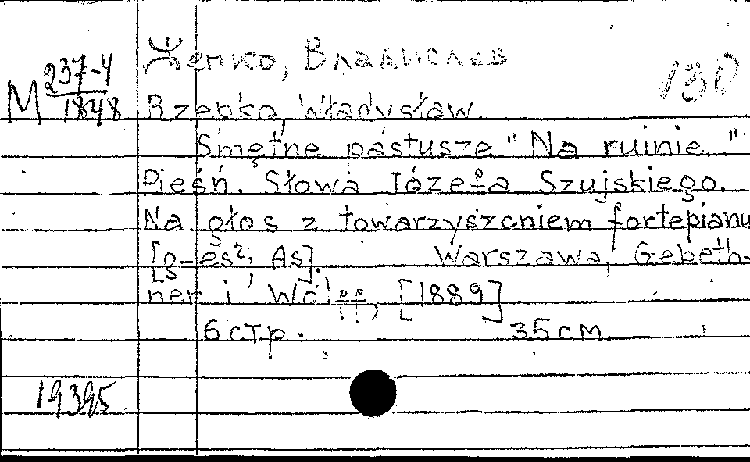 Жепко, Владислав
M 237-4/1848
130
Rzepko, Władysław.
Smętne pastusze "Na ruinie"
Pieśń. Słowa Józefa Szujskiego.
Na głos z towarzyszeniem fortepianu
[g-es², As]. Warszawa, Gebeth-
ner i Wolff, [1889]
6 стр. 35 см
19395